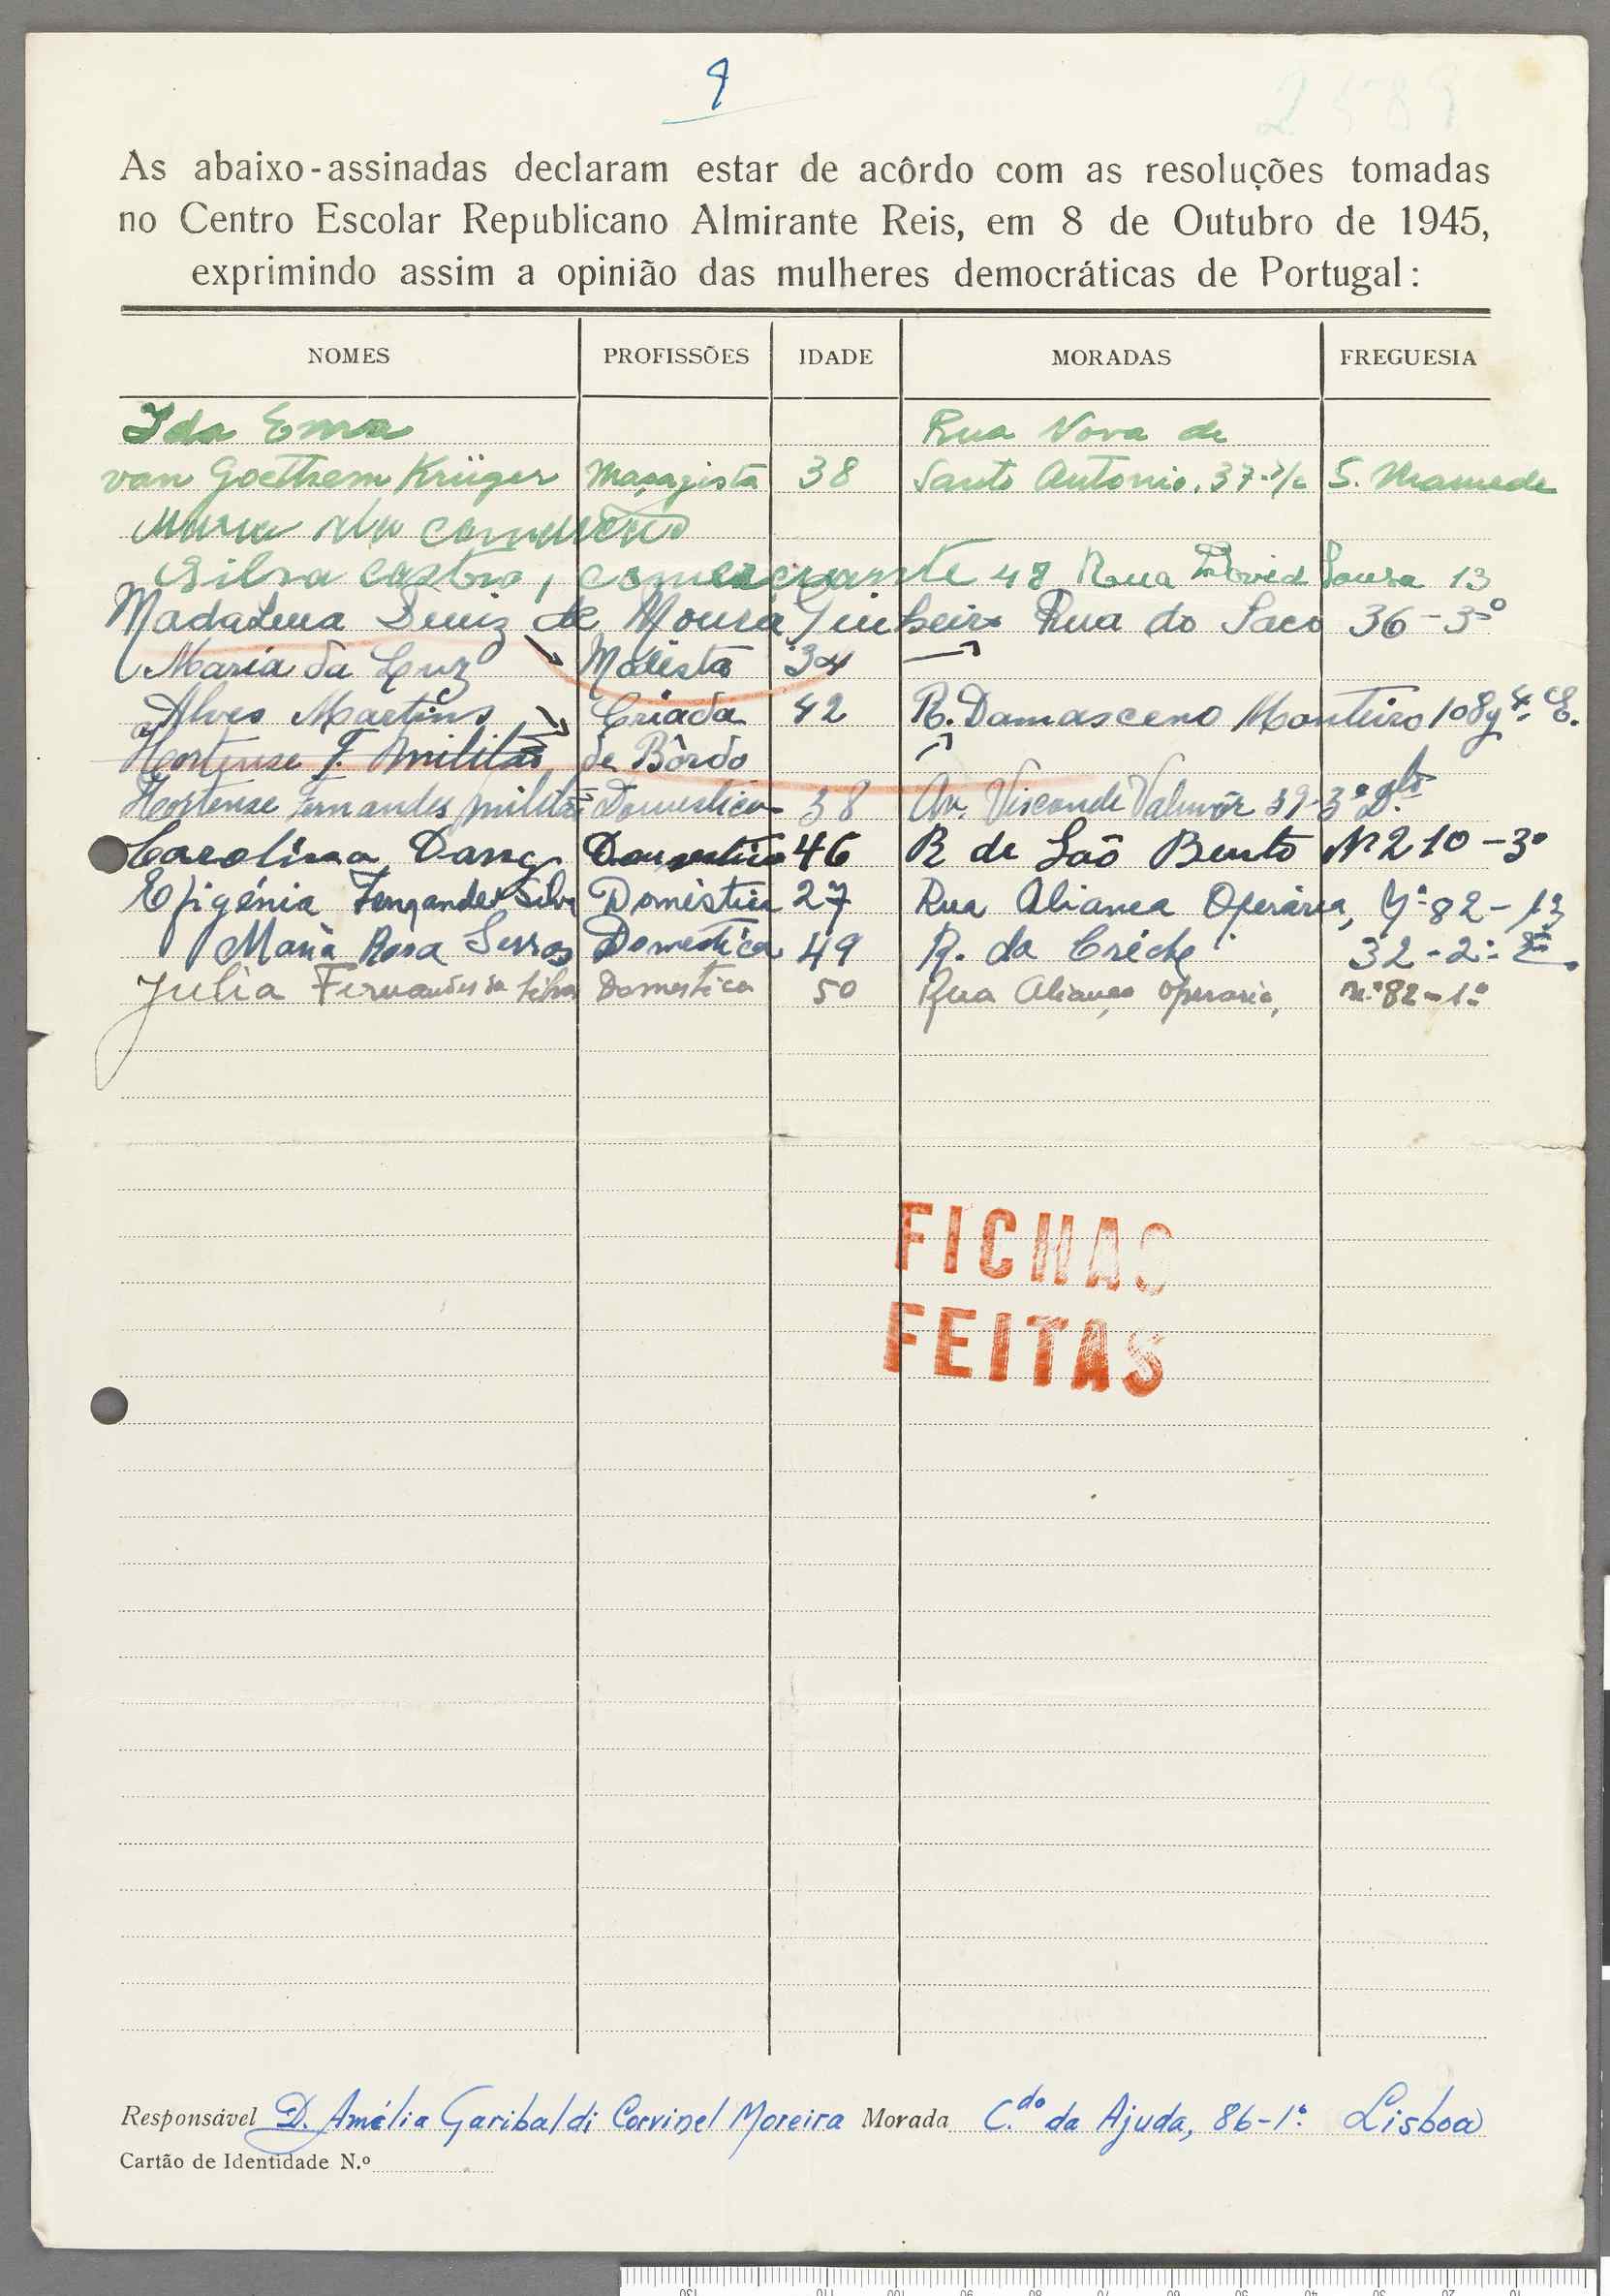 9
2589
As abaixo-assinadas declaram estar de acôrdo com as resoluções tomadas
no Centro Escolar Republicano Almirante Reis, em 8 de Outubro de 1945,
exprimindo assim a opinião das mulheres democráticas de Portugal:
NOMES PROFISSÕES IDADE MORADAS FREGUESIA
Ida Emra Rua Nova de
van Goethem Krüger Maçagista 38 Santo Antonio, 37-r/c S. Mamede
Maria da Conceição
Silva Castro, comerciante 48 Rua David Sousa 13
Madalena Deniz de Moura Pinheiro Rua do Saco 36-3º
Maria da Luz Modista 34
Alves Martins Criada 42 R. Damasceno Monteiro 108 4º E.
Hortense F. Militão de Bôrdo
Hortense Fernandes Militão Domestica 38 Av. Visconde Valmôr 39-3º D.to
Carolina Domestica 46 R de São Bento Nº 210-3º
Efigénia Fernandes Silva Doméstica 27 Rua Aliança Operária, Nº 82-1º
Maria Rosa Serros Domestica 49 R. da Creche 32-2º E.
Julia Fernandes da Silva Domestica 50 Rua Aliança Operaria, n.º 82-1º
FICHAS
FEITAS
Responsável D. Amélia Garibaldi Corvinel Moreira Morada C.da da Ajuda, 86-1º Lisboa
Cartão de Identidade N.º